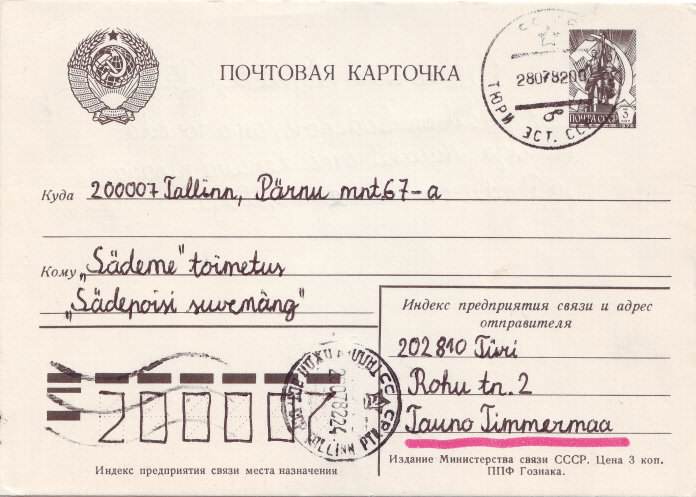 ПОЧТОВАЯ КАРТОЧКА
28078200
ТЮРИ ЭСТ. СС
ПОЧТА СССР 3
Куда 200007 Tallinn, Pärnu mnt. 67-a
Кому „Sädeme" toimetus
„Sädepoisi suvemäng"
Индекс предприятия связи и адрес
отправителя
202810 Türi
Rohu tn. 2
Tauno Timmermaa
200007
Индекс предприятия связи места назначения
Издание Министерства связи СССР. Цена 3 коп.
ППФ Гознака.